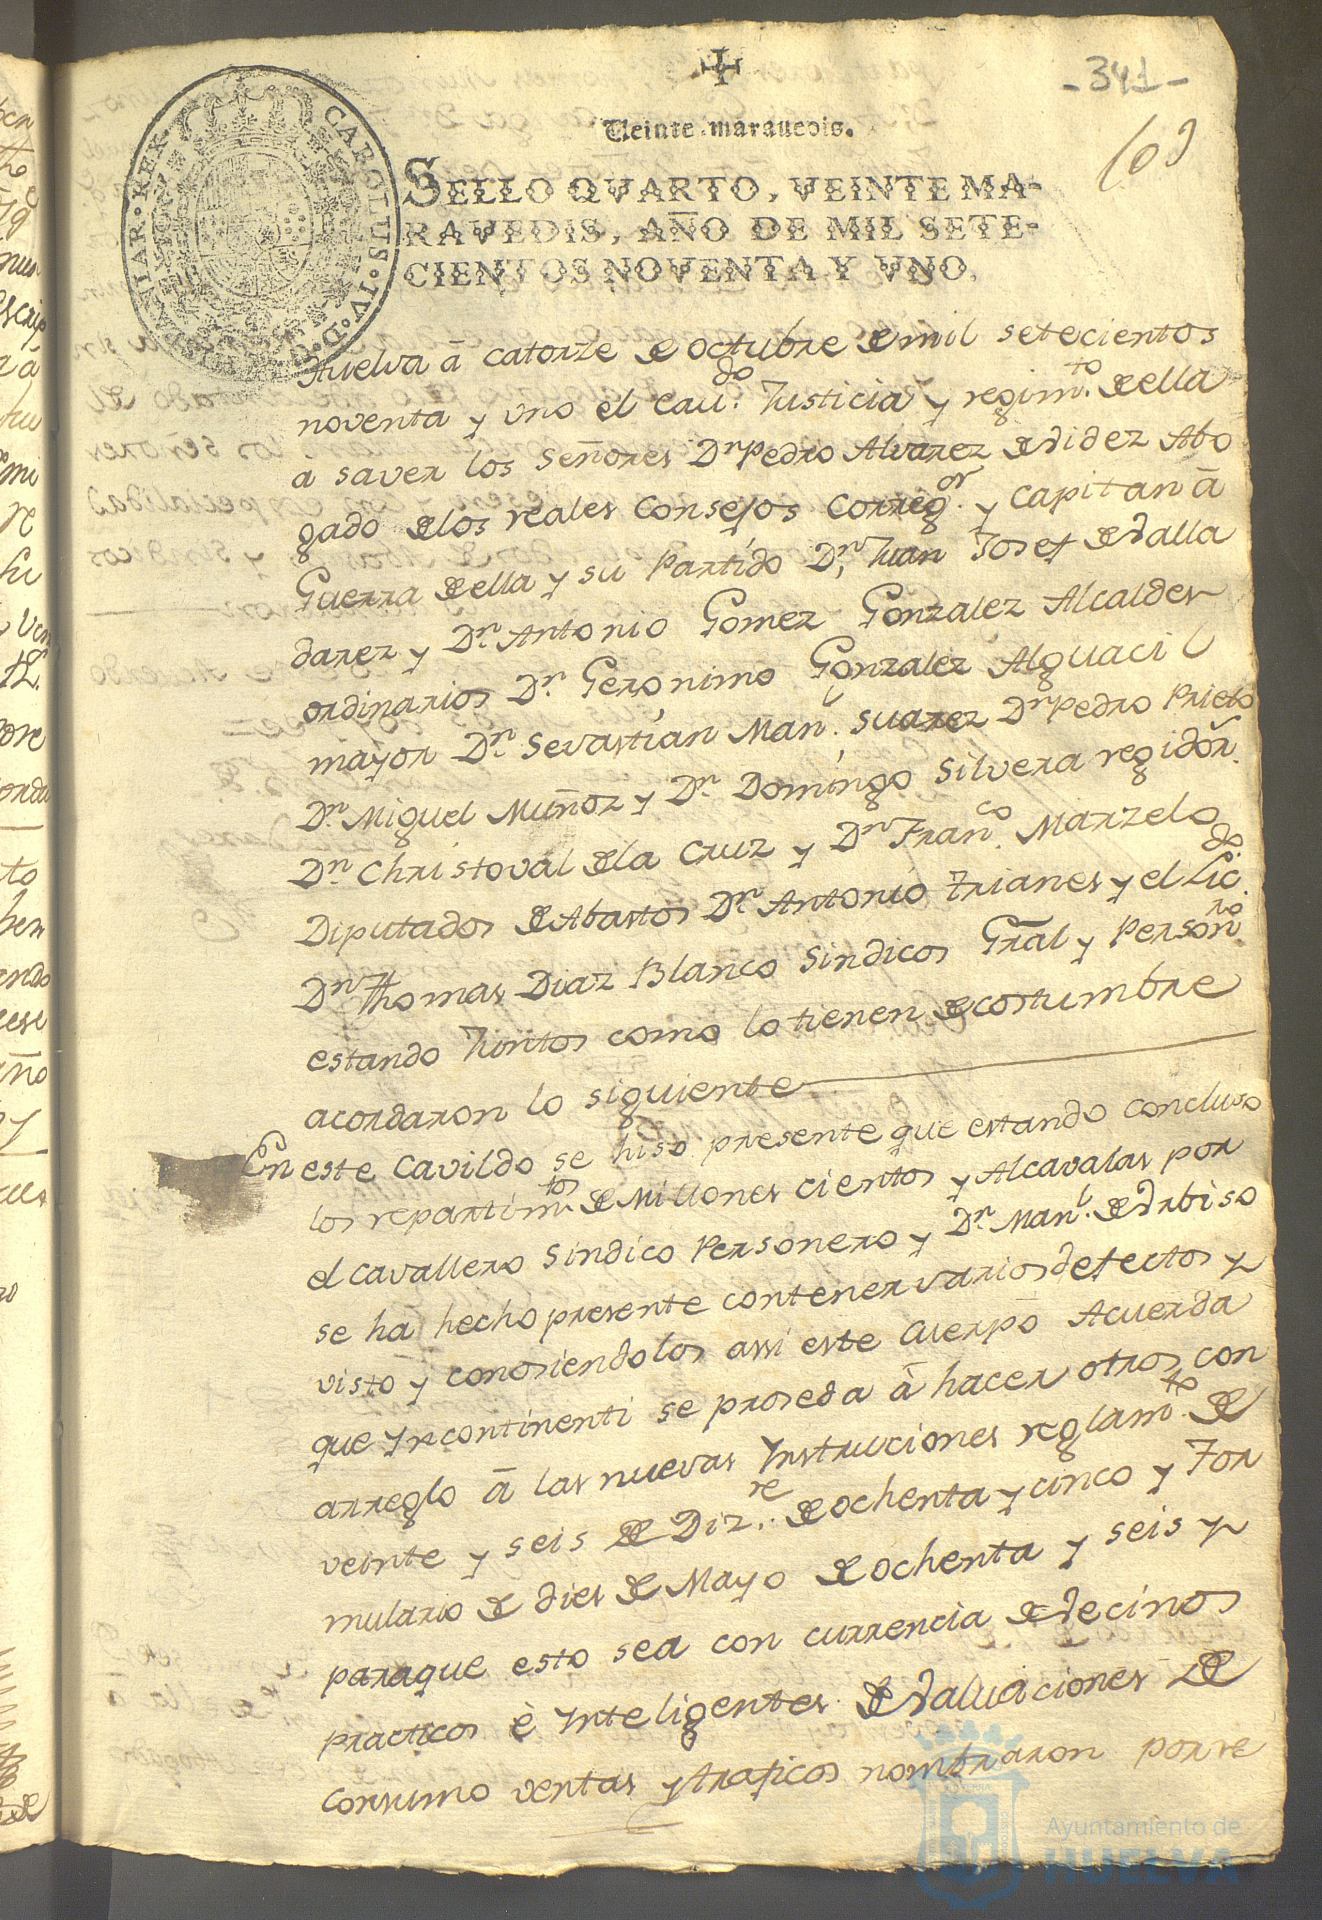 -341-
109
Veinte maravedis.
SELLO QVARTO, VEINTE MA-
RAVEDIS, AÑO DE MIL SETE-
CIENTOS NOVENTA Y VNO.
CAROLUS·IV·D·G·HISPANIAR·REX·
Huelva â catorze de octubre de mil setecientos
noventa y uno el Cav.do Justicia y regim.to de ella
a saver los señores Dn Pedro Alvarez de Videz Abo
gado de los reales Consejos Correg.or y Capitan â
Guerra de ella y su Partido Dn. Juan Josef de Valla
darez y Dn. Antonio Gomez Gonzalez Alcaldes
ordinarios Dn. Geronimo Gonzalez Alguacil
mayor Dn. Sevastian Man.l Suarez Dn Pedro Prieto
Dn. Miguel Muñoz y Dn. Domingo Silvera regidor.
Dn. Christoval de la Cruz y Dn Fran.co Marzelo
Diputados de Abastos Dn. Antonio Trianes y el Lic.do
Dn Thomas Diaz Blanco Sindicos Gral y Person.ro
estando Juntos como lo tienen de costumbre
acordaron lo siguiente
En este Cavildo se hiso presente que estando concluso
los repartim.tos de Millones cientos y Alcavalas por
el Cavallero Sindico Personero y Dn. Man.l de Urbiso
se ha hecho presente contener varios defectos y
visto y conosiendolos assi este Cuerpo Acuerda
que Yncontinenti se proseda â hacer otros con
arreglo â las nuevas Ynstruciones reglam.to de
veinte y seis de Diz.re de ochenta y cinco y For
mulario de dies de Mayo de ochenta y seis y
para que esto sea con currencia de Vecinos
practicos è Ynteligentes de Valuaciones de
Consumo ventas y traficos nombraron por re
Ayuntamiento de
HUELVA